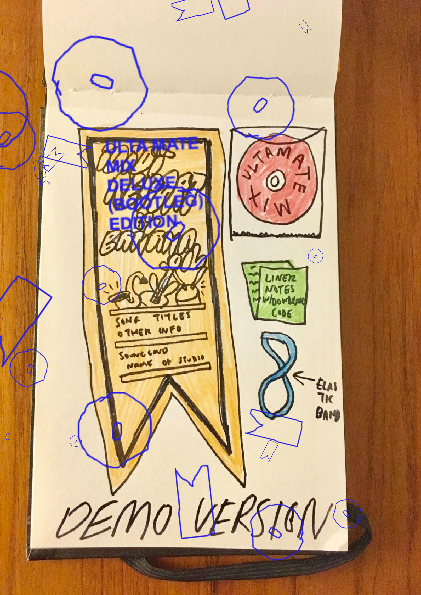 ULTAMATE
MIX
DELUXE
(BOOTLEG)
EDITION
SONG TITLES
OTHER INFO
NAME OF STUDIO
ULTAMATE
MIX
LINER
NOTES
W/DOWNLOAD
CODE
ELAS
TIC
BAND
DEMO VERSION